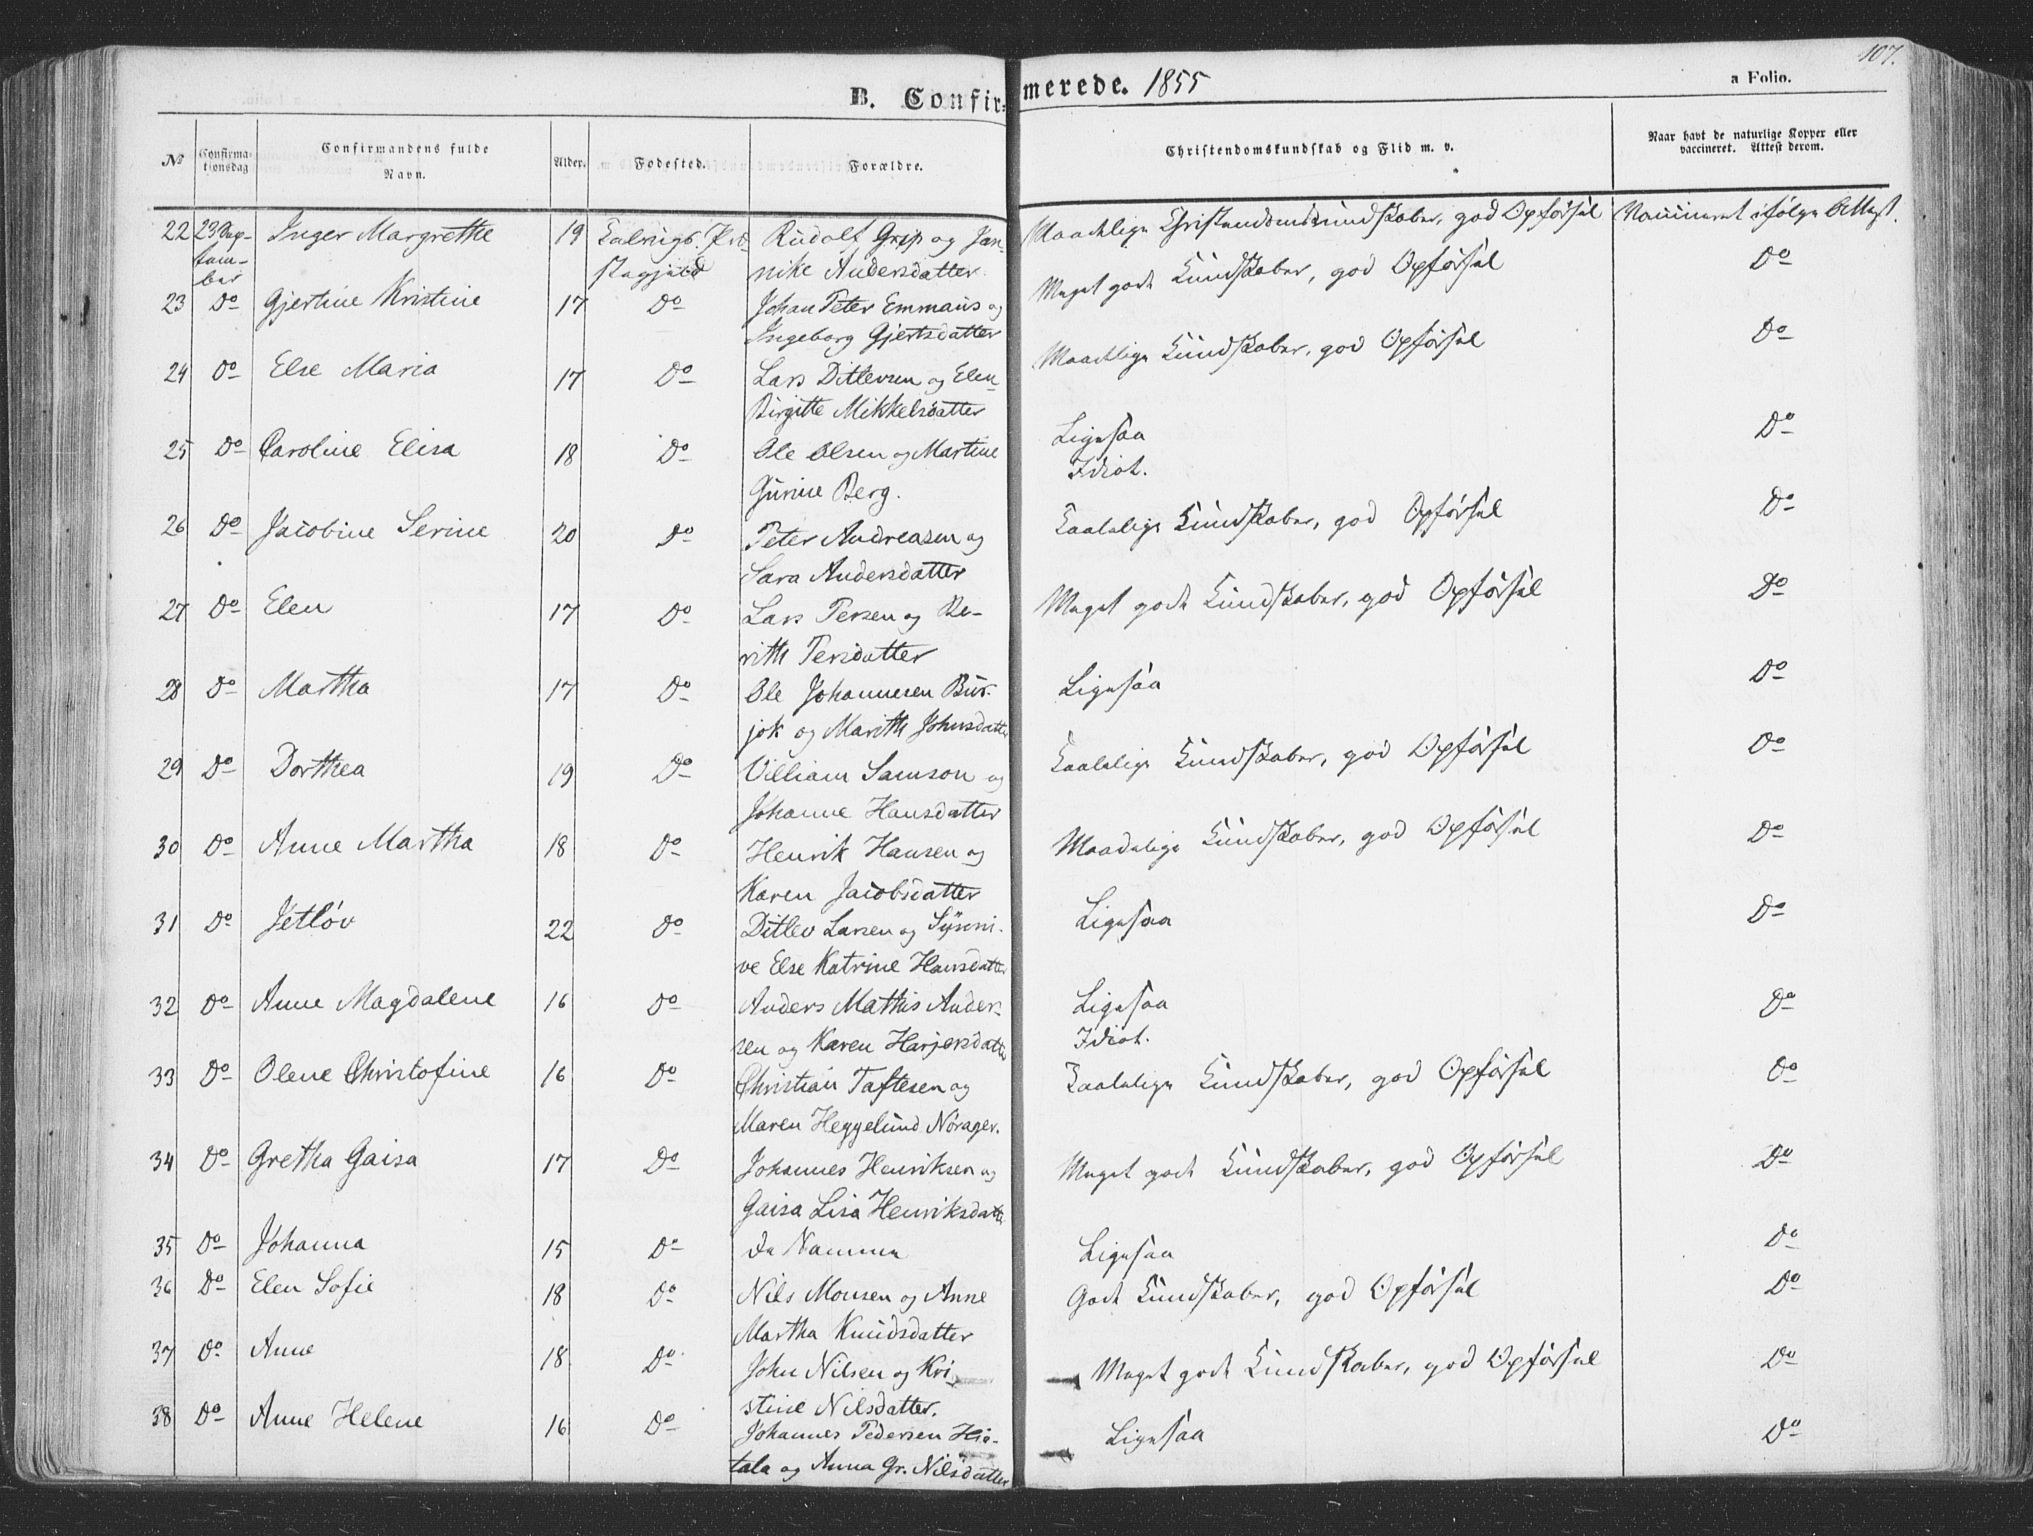 107.
B. Confirmerede. 1855
a Folio.
No
Confirmationsdag
Confirmandens fulde Navn.
Alder.
Fødested.
Forældre.
Christendomskundskab og Flid m. v.
Naar havt de naturlige Kopper eller vaccineret. Attest derom.
22 23 September Inger Margrethe 19 Talvigs Præstegjeld Rudolf Grip og Jannike Andersdatter Maadelige Christendomskundskaber, god Opførsel Vaccineret ifølge Attest.
23 Do Gjertine Kristine 17 Do Johan Peter Emmaus og Ingeborg Gjertsdatter Meget gode Kundskaber, god Opførsel Do
24 Do Else Maria 17 Do Lars Ditlevsen og Elen Birgitte Mikkelsdatter Maadelige Kundskaber, god Opførsel Do
25 Do Caroline Elisa 18 Do Ole Olsen og Martine Gurine Berg. Ligesaa Idiot. Do
26 Do Jacobine Serine 20 Do Peter Andreasen og Sara Andersdatter Taalelige Kundskaber, god Opførsel Do
27 Do Elen 17 Do Lars Persen og Berith Persdatter Meget gode Kundskaber, god Opførsel Do
28 Do Martha 17 Do Ole Johannesen Burjok og Marith Johnsdatter Ligesaa Do
29 Do Dorthea 19 Do Villiam Samson og Johanne Hansdatter Taalelige Kundskaber, god Opførsel Do
30 Do Anne Martha 18 Do Henrik Hansen og Karen Jacobsdatter Maadelige Kundskaber, god Opførsel Do
31 Do Jetløv 22 Do Ditlev Larsen og Synnive Else Katrine Hansdatter Ligesaa Do
32 Do Anne Magdalene 16 Do Anders Mathis Andersen og Karen Harjersdatter Ligesaa Idiot. Do
33 Do Olene Christofine 16 Do Christian Taftesen og Maren Heggelund Norager. Taalelige Kundskaber, god Opførsel Do
34 Do Gretha Gaisa 17 Do Johannes Henriksen og Gaisa Lisa Henriksdatter Meget gode Kundskaber, god Opførsel Do
35 Do Johanna 15 Do De Samme Ligesaa Do
36 Do Elen Sofie 18 Do Nils Monsen og Anne Martha Knudsdatter Gode Kundskaber, god Opførsel Do
37 Do Anne 18 Do John Nilsen og Kristine Nilsdatter. Meget gode Kundskaber, god Opførsel Do
38 Do Anne Helene 16 Do Johannes Pedersen Hietala og Anna Gr. Nilsdatter Ligesaa Do